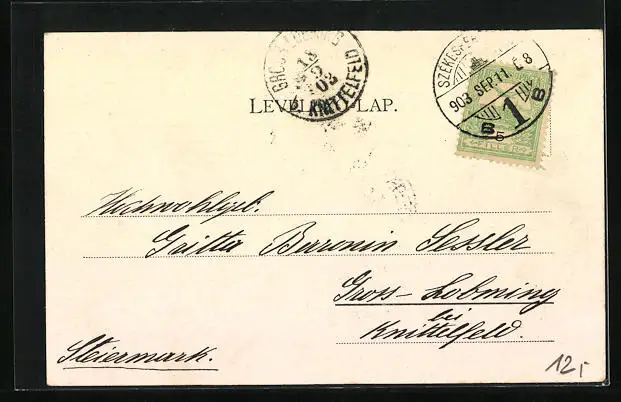 13
9
03
KNITTELFELD
SZÉKESFE
903 SEP. 11. E 8
B 1 B
5
FILLÉR
LEVEL LAP.
Hochwohlgeb.
Gritta Baronin Sessler
Gross-Lobming
bei
Knittelfeld.
Steiermark.
12,-